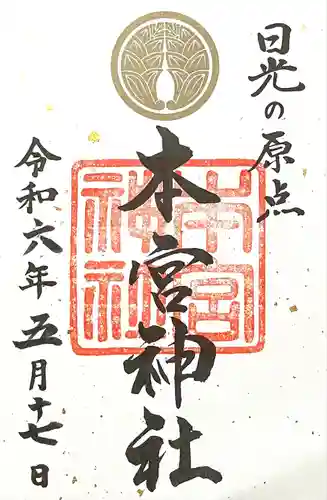 日光の原点
本宮神社
本宮
神社
令和六年五月十七日